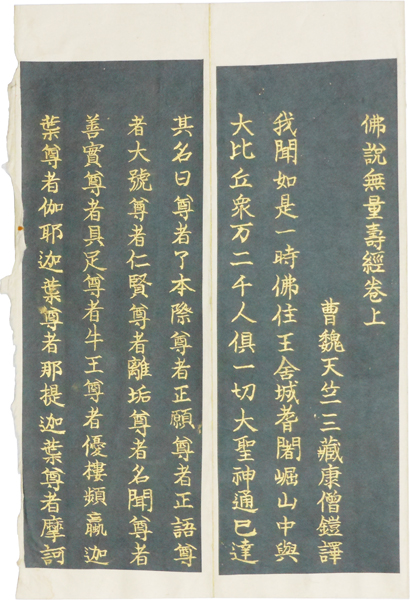 佛說無量壽經卷上
曹魏天竺三藏康僧鎧譯
我聞如是一時佛住王舍城耆闍崛山中與
大比丘眾万二千人俱一切大聖神通已達
其名曰尊者了本際尊者正願尊者正語尊
者大號尊者仁賢尊者離垢尊者名聞尊者
善實尊者具足尊者牛王尊者優樓頻蠃迦
葉尊者伽耶迦葉尊者那提迦葉尊者摩訶